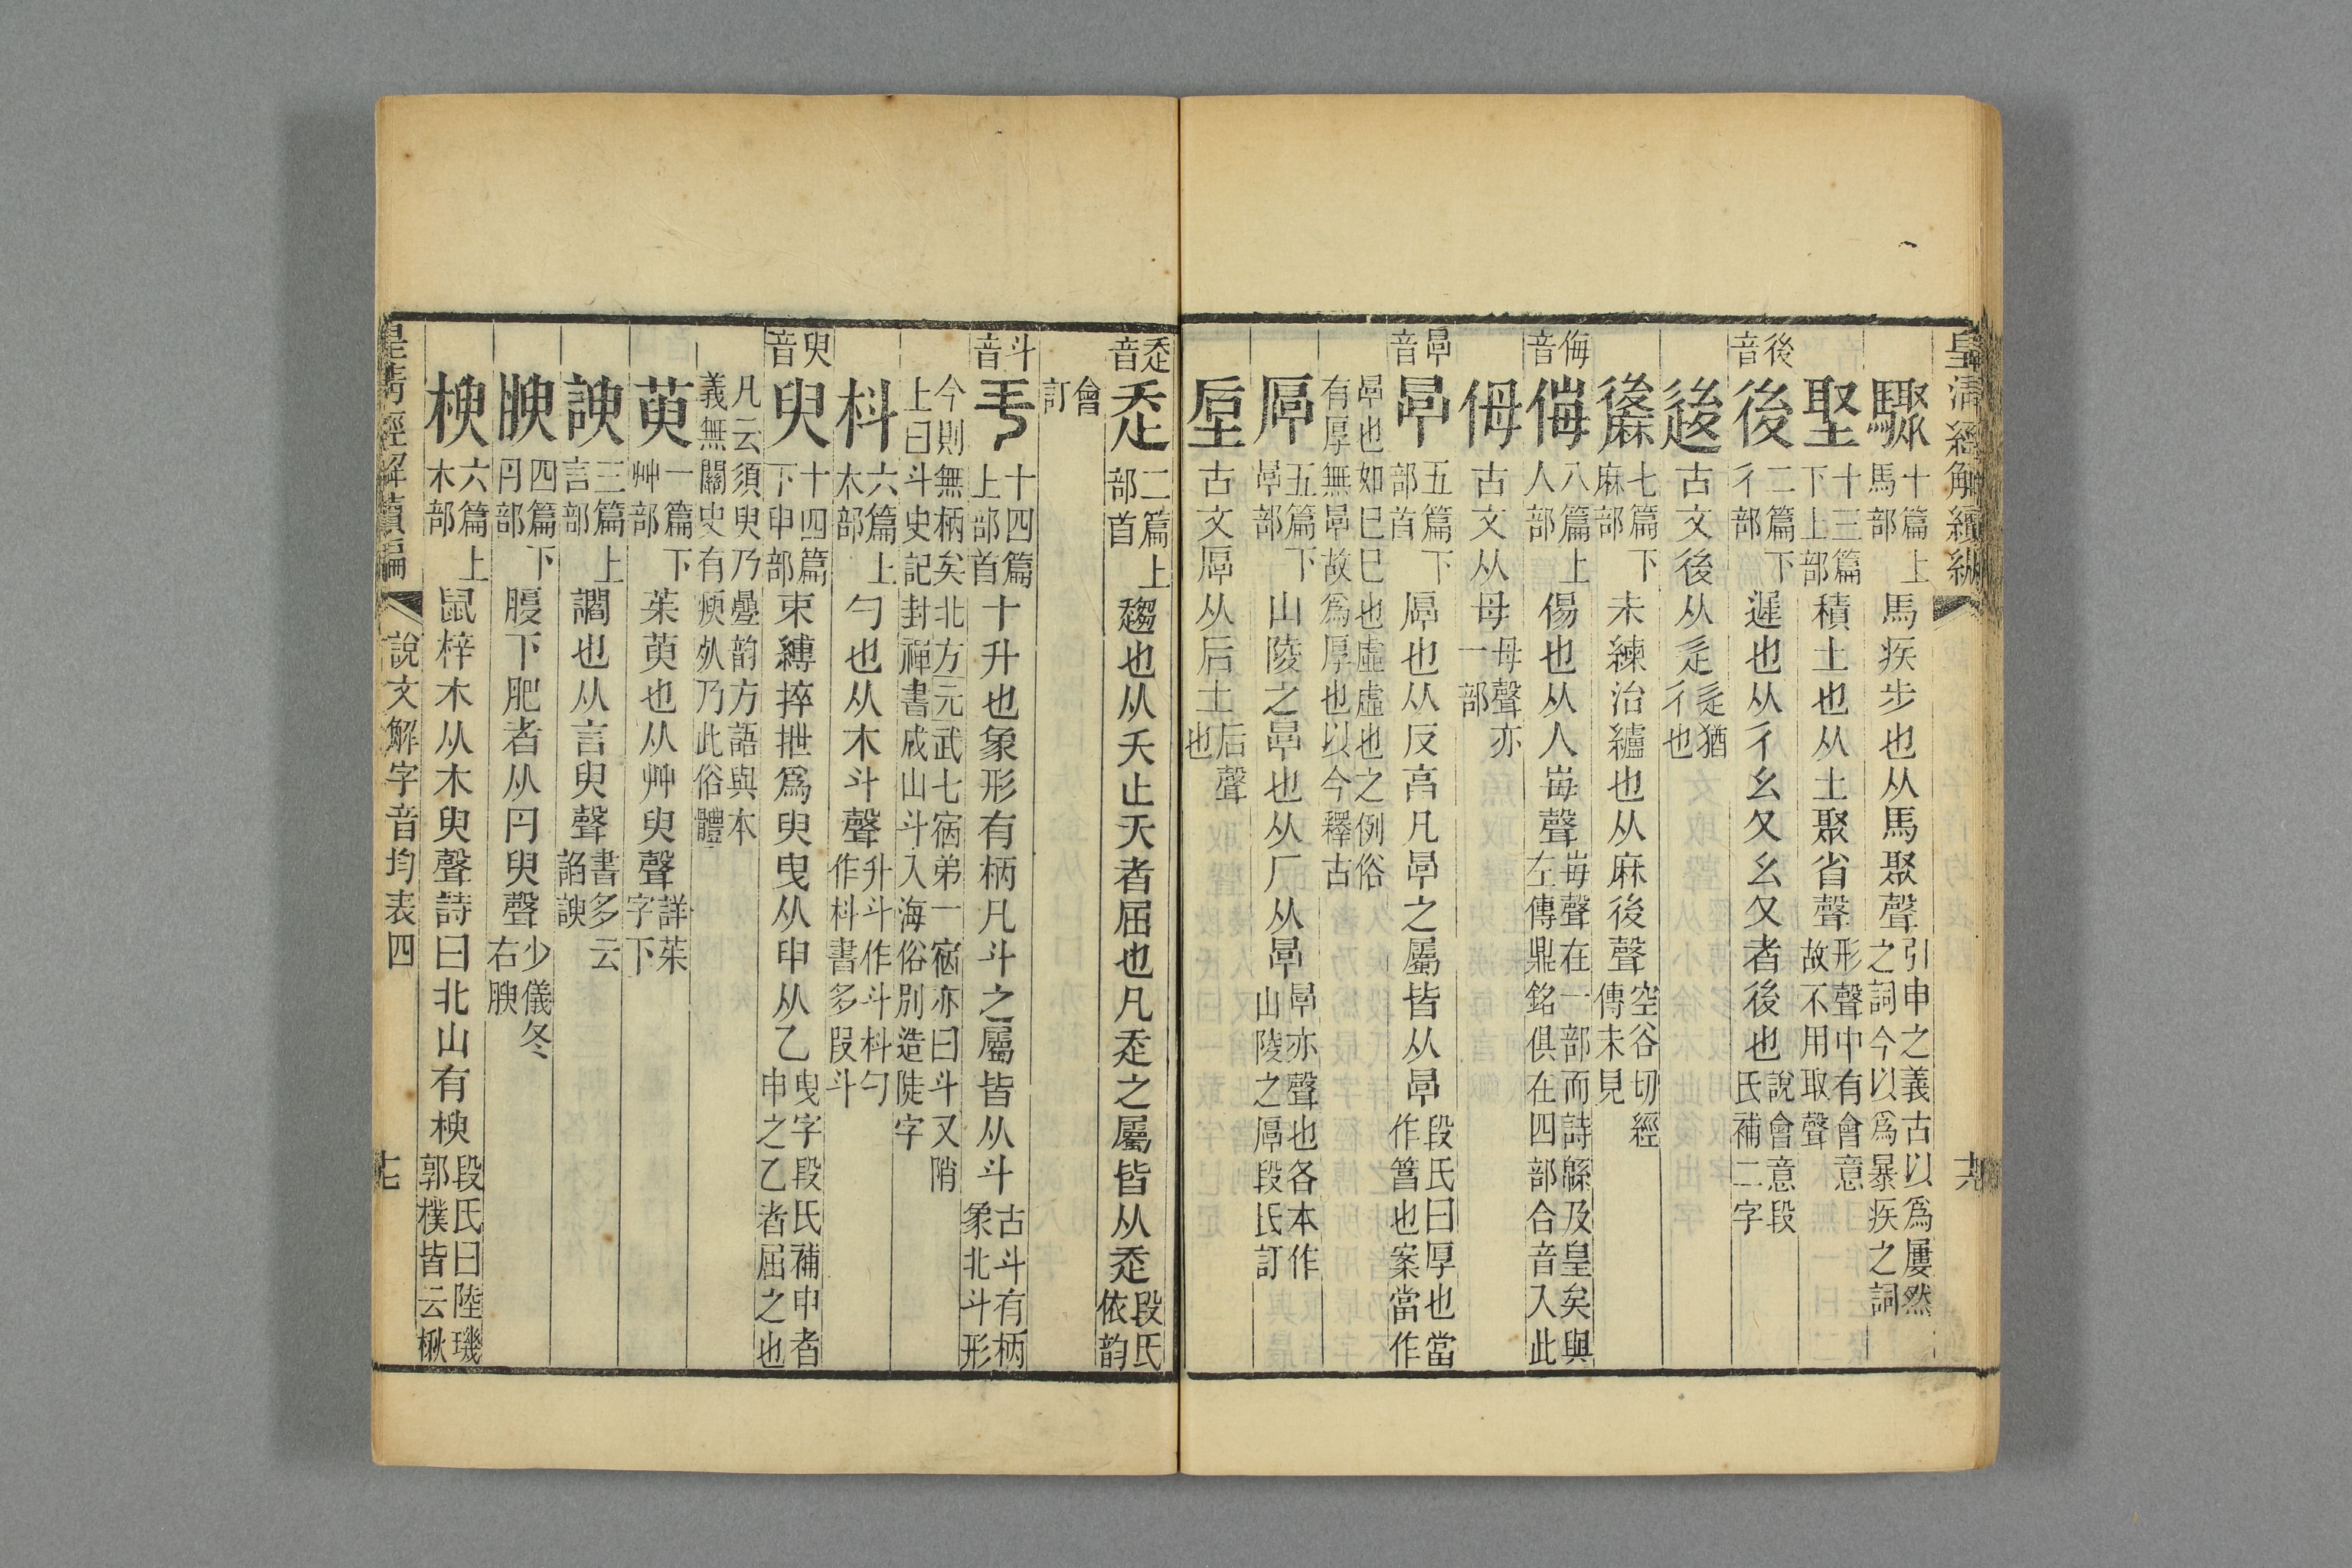 皇清經解續編
十六
驟十篇上馬部馬疾步也从馬聚聲引申之義古以爲屢然之詞今以爲暴疾之詞
堅十三篇下土部積土也从土聚省聲形聲中有會意故不用取聲
後音後二篇下彳部遲也从彳幺夊幺夊者後也說會意段氏補二字
𨒥古文後从辵辵猶彳也
䋀七篇下麻部未練治纑也从麻後聲空谷切經傳未見
侮音侮八篇上人部傷也从人每聲每聲在一部而詩緜及皇矣與左傳鼎銘俱在四部合音入此
㑄古文从母母聲亦一部
㫗音㫗五篇下部首㫗也从反亯凡㫗之屬皆从㫗段氏曰厚也當作䈞也案當作
㫗也如巳巳也虛虛也之例俗有厚無㫗故爲厚也以今釋古
厚五篇下㫗部山陵之㫗也从厂从㫗㫗亦聲也各本作山陵之厚段氏訂
垕古文厚从后土后聲也
走音走二篇上部首趨也从夭止夭者屈也凡走之屬皆从走段氏依韵
會訂
斗音斗十四篇上部首十升也象形有柄凡斗之屬皆从斗古斗有柄象北斗形
今則無柄矣北方元武七宿弟一宿亦曰斗又陗上曰斗史記封禪書成山斗入海俗別造陡字
枓六篇上木部勺也从木斗聲升斗作斗枓勺作枓書多叚斗
臾音臾十四篇下申部束縛捽抴爲臾曳从申从乙曳字段氏補申者申之乙者屈之也
凡云須臾乃疊韵方語與本義無關史有瘐死乃此俗體
萸一篇下艸部茱萸也从艸臾聲詳茱字下
諛三篇上言部讇也从言臾聲書多云諂諛
腴四篇下肉部腹下肥者从肉臾聲少儀冬右腴
楰六篇上木部鼠梓木从木臾聲詩曰北山有楰段氏曰陸璣郭樸皆云楸
皇清經解續編
說文解字音均表四
十七